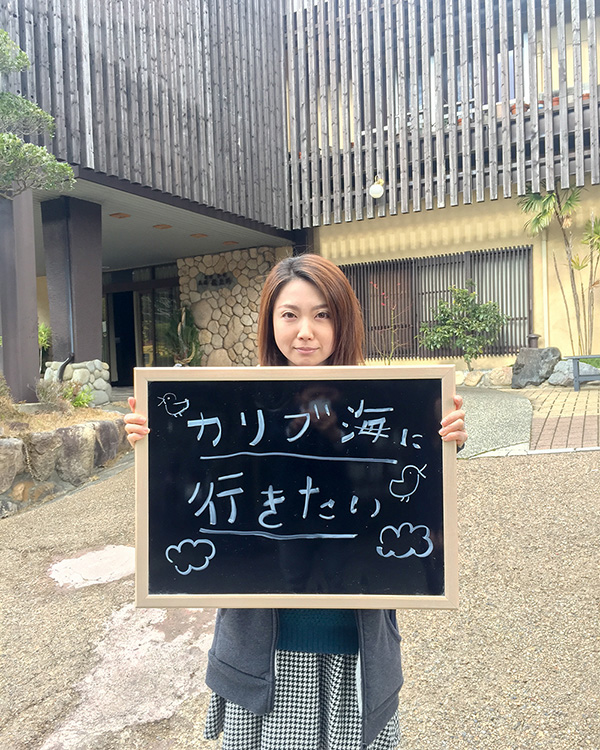 カリブ海に
行きたい